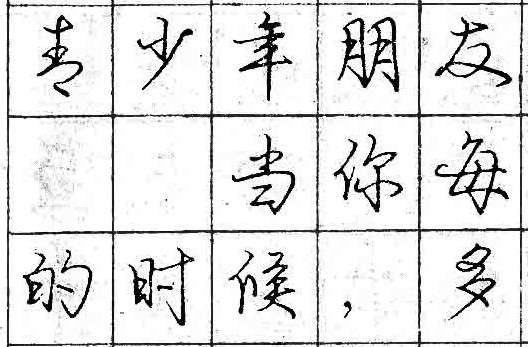 青少年朋友
当你每
的时候，多